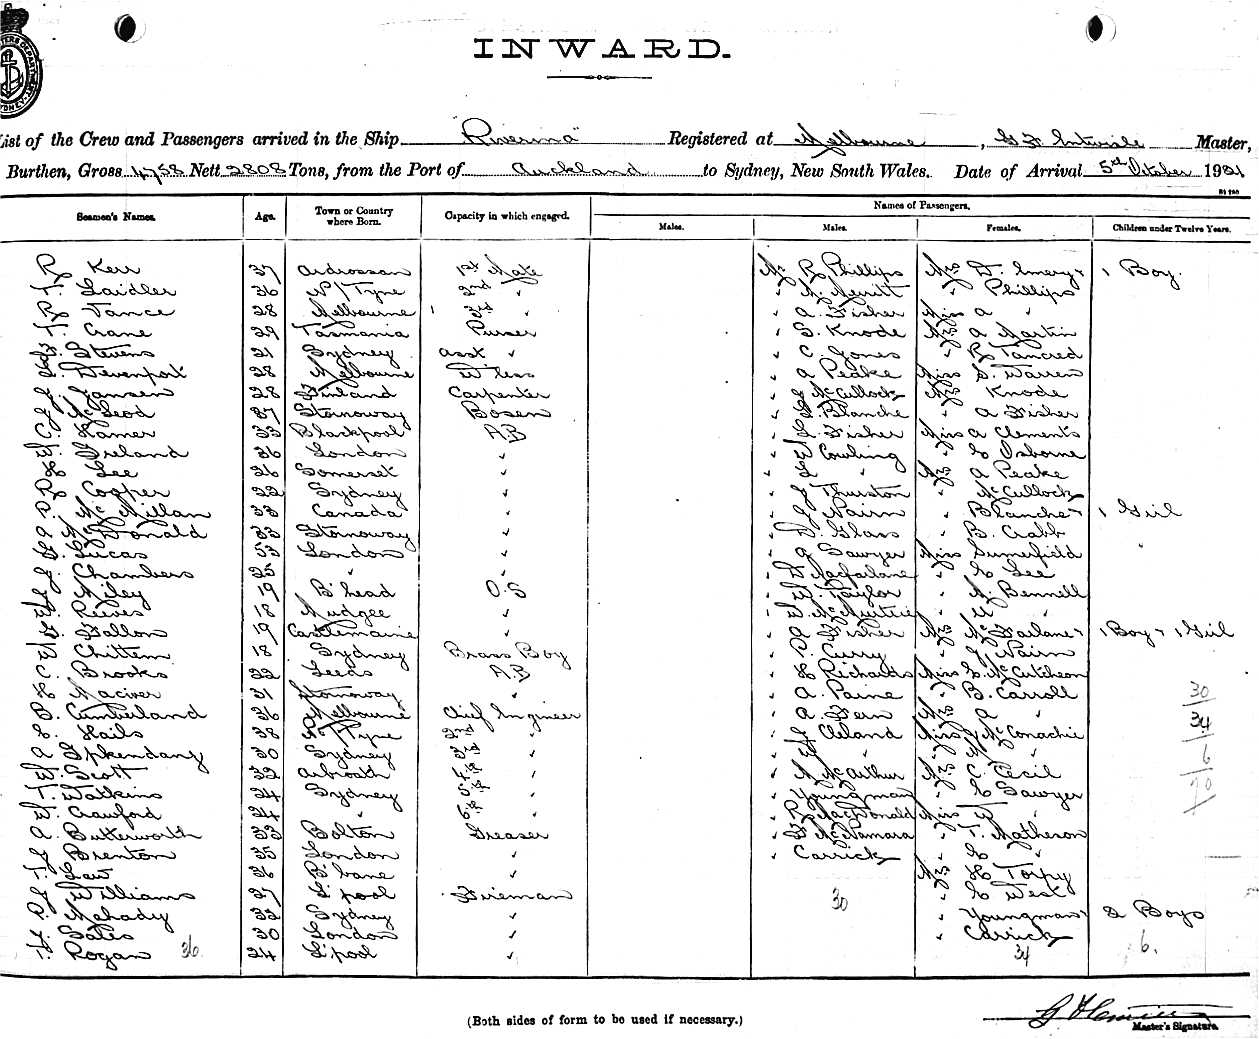 INWARD.
List of the Crew and Passengers arrived in the Ship "Riverina" Registered at Melbourne, Master,
Burthen, Gross 4758 Nett 2808 Tons, from the Port of Auckland to Sydney, New South Wales. Date of Arrival 5th October 1921
Seamen's Names. Age. Town or Country where Born. Capacity in which engaged. Names of Passengers.
Males. Males. Females. Children under Twelve Years.
R Kerr 37 Ardrossan 1st Mate Mr R Phillips Mrs D. Emery 1 Boy.
T. Laidler 36 N/Tyne 2nd " " Merritt " Phillips
R Vance 28 Melbourne 3rd " " A. Fisher Miss A "
T. Crane 29 Tasmania Purser " S. Knode Mrs A Martin
Stevens 21 Sydney Asst " " C Jones " R Tancred
Devenport 28 Melbourne W'less " A Peake Miss S. Warren
J Jansen 28 Finland Carpenter " J McCullock Mrs Knode
McLeod 37 Stornoway Bosen " Blanche " A Fisher
C. Hamer 33 Blackpool A.B " Fisher Miss A Clements
W. Ireland 36 London " " W Cowling " Osborne
H Lee 36 Somerset " " L " Mrs A Peake
R Cooper 22 Sydney " " J Thurston " McCullock
McMillan 33 Canada " " J Nairn " Blanche 1 Girl
A McDonald 33 Stornoway " " D. Glass " B. Crabb
Lucas 53 London " " J Sawyer Miss Sumerfield
J. Chambers 25 " " " D Macfarlane " Lee
J Riley 19 B'head O.S " W. Taylor " M. Bennell
W. Reeves 18 Mudgee " "
Fallon 19 Castlemaine " " A Fisher Mrs McFarlane 1 Boy 1 Girl
W Chittem 18 Sydney Brass Boy " P. Curry " J Nairn
C. Brooks 22 Leeds A.B " H Richards Miss McCutcheon
H Maciver 31 Stornoway " " A. Paine " B. Carroll 30
B. Cumberland 36 Melbourne Chief Engineer " A. Fern Mrs A " 34
Hails 38 N Tyne 2nd " " J Cleland Miss J McConachie
A 30 Sydney 3rd " " W " 6
W. Scott 32 Arbroath 4th " " McArthur Mrs C. Cecil 70
T. Watkins 24 Sydney 5th " " Youngman " Sawyer
W. Crawford 24 " 6th " " R MacDonald Miss W "
A. Butterworth 33 Bolton Greaser " McNamara " T. Matheson
J Brenton 35 London " " Carrick "
T. Law 36 B'bane " Mrs H Torpy
J Williams 27 L'pool Fireman 30 " West
P. Mahady 32 Sydney " " Youngman 2 Boys
Bates 30 London " " Carrick
T. Rogan 36 24 L'pool " 34 6.
(Both sides of form to be used if necessary.)
Master's Signature.